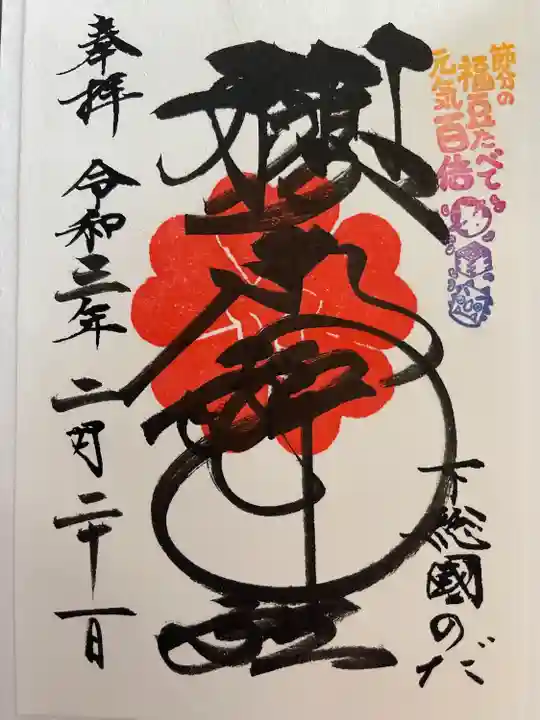 節分の
福豆たべて
元気百倍
下総國のだ
櫻木神社
奉拝 令和三年 二月二十一日